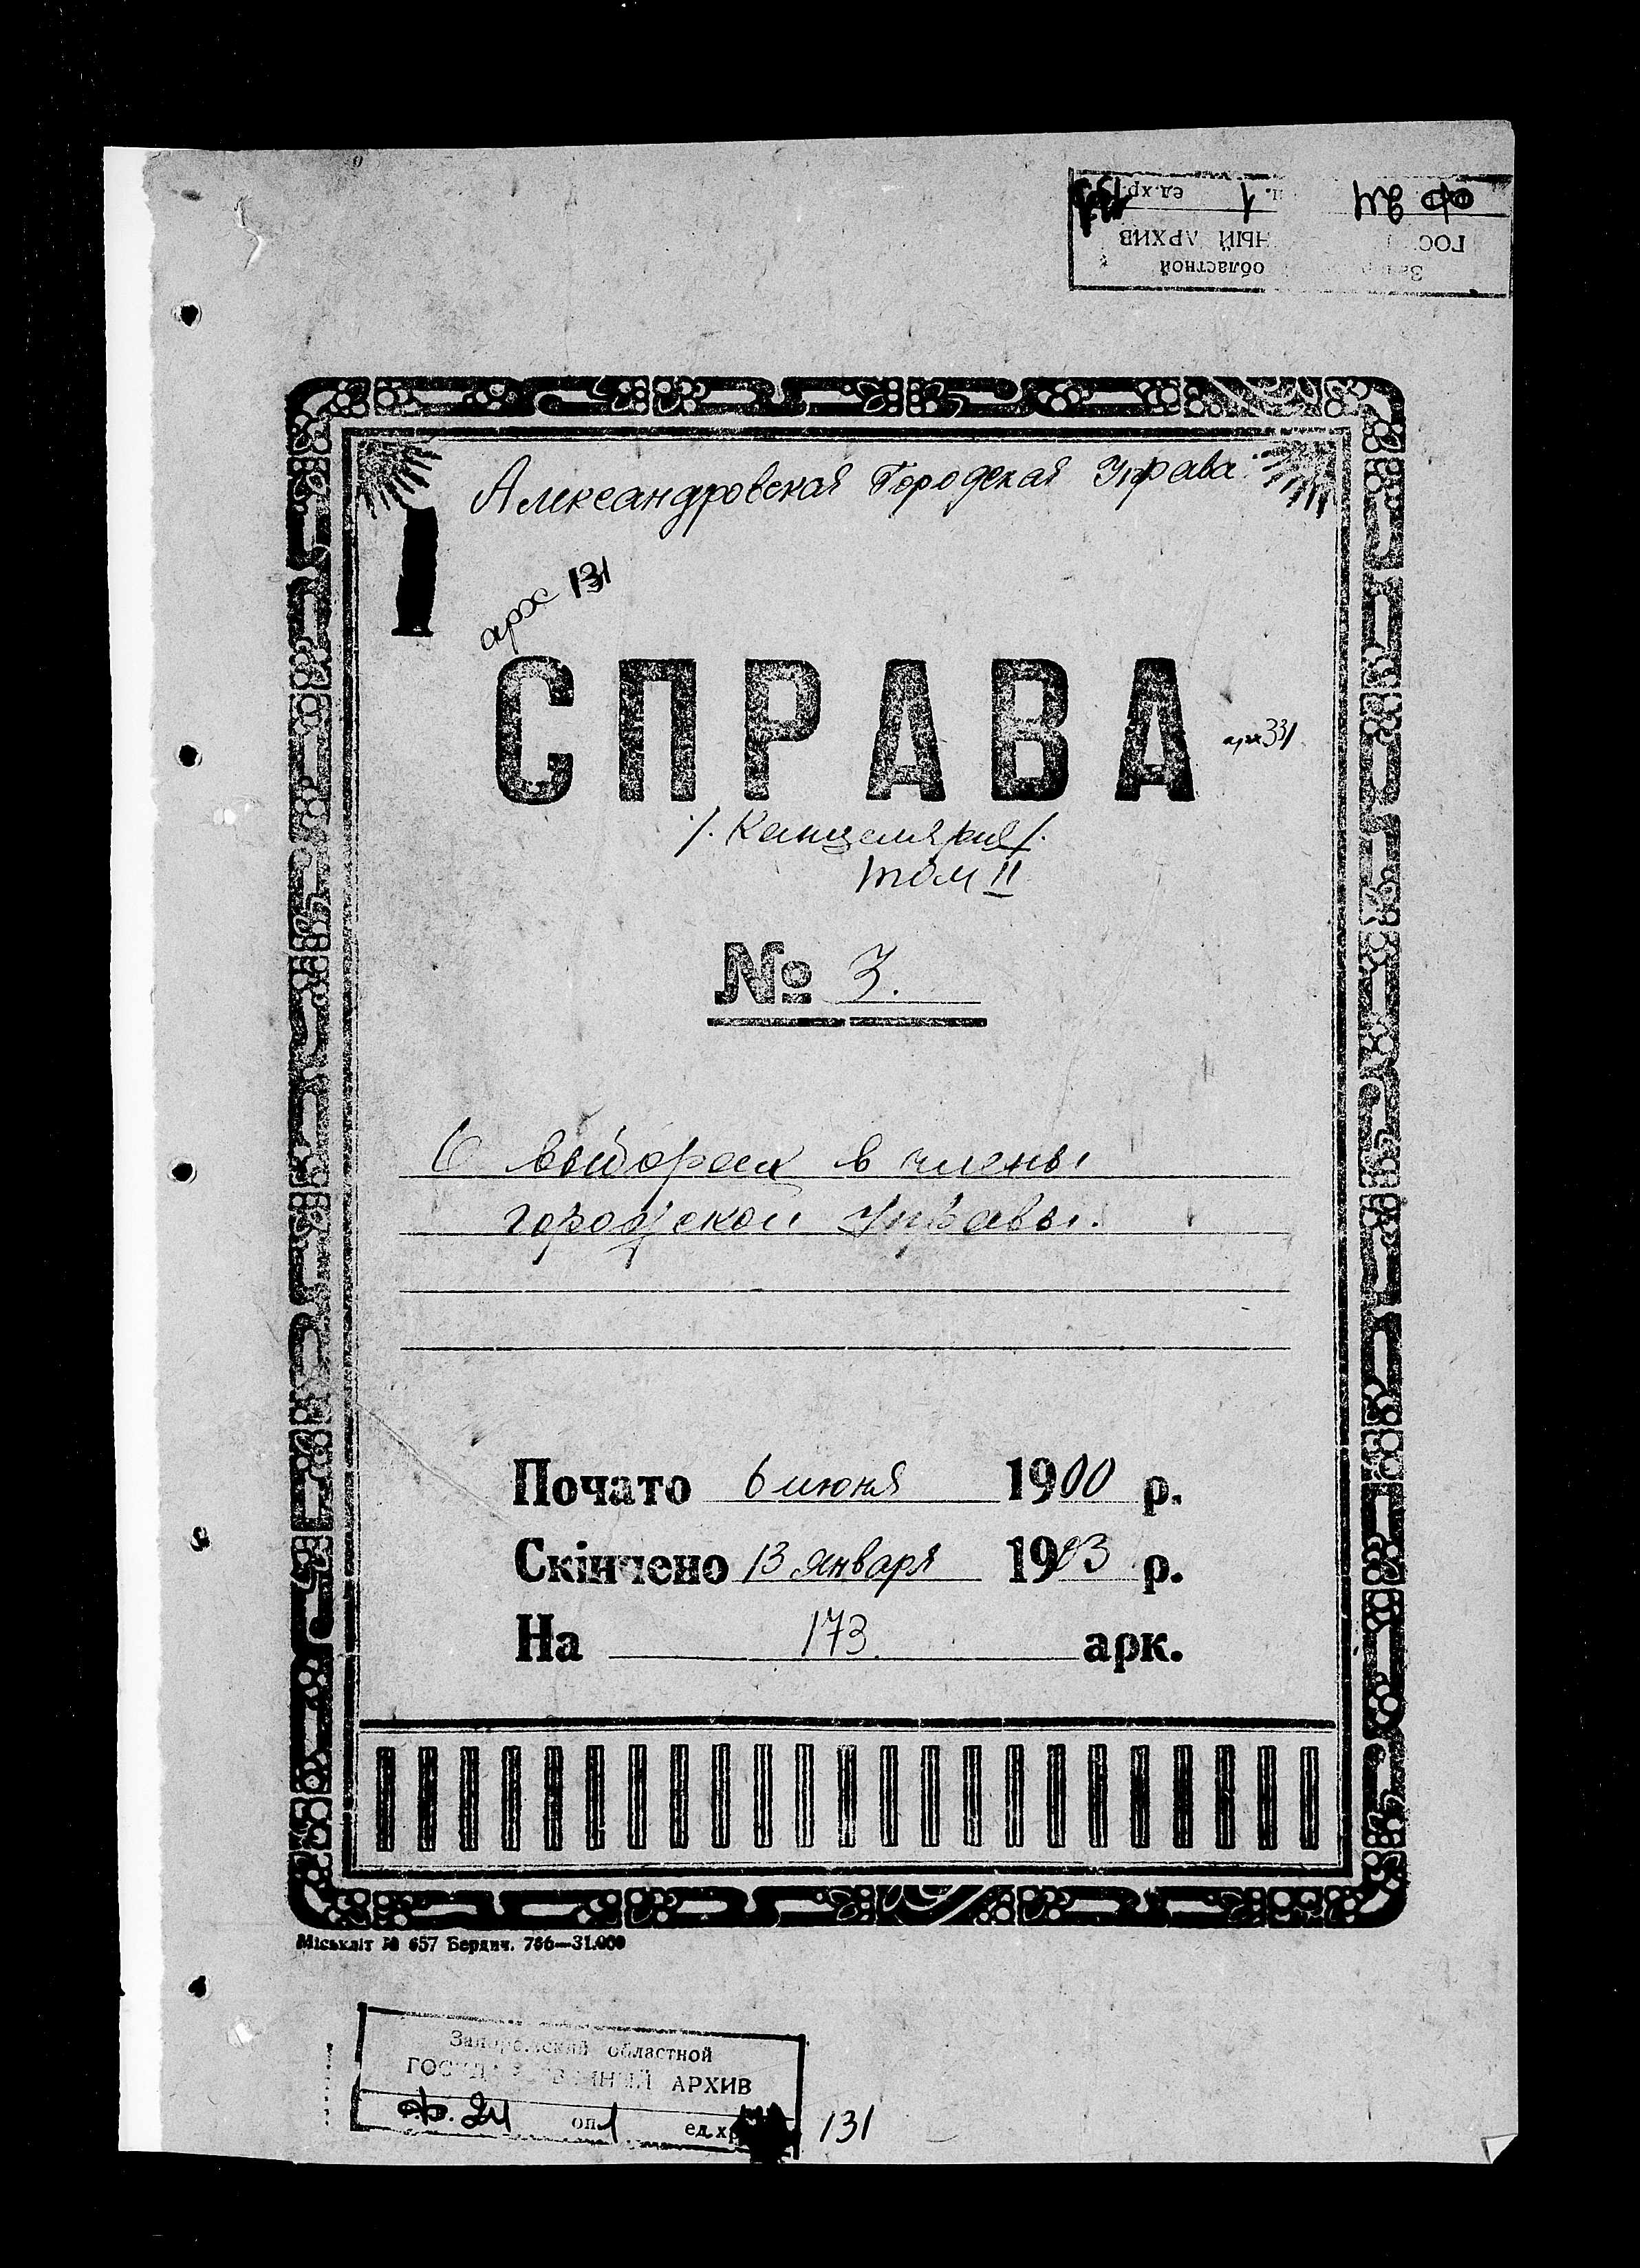 ед.хр.
НЫЙ АРХИВ
областной
Александровская Городская Управа.
арх 131
СПРАВА
арх 331
/. Канцелярия /.
том II
№ 3.
О выборах в члены
городской Управы.
Почато 6 июня 1900 р.
Скінчено 13 января 1903 р.
На 173 арк.
Міськліт № 657 Бердич. 766—31.000
Запорожский областной
ГОСУДАРСТВЕННЫЙ АРХИВ
ф. 24 оп 1 ед.хр 131